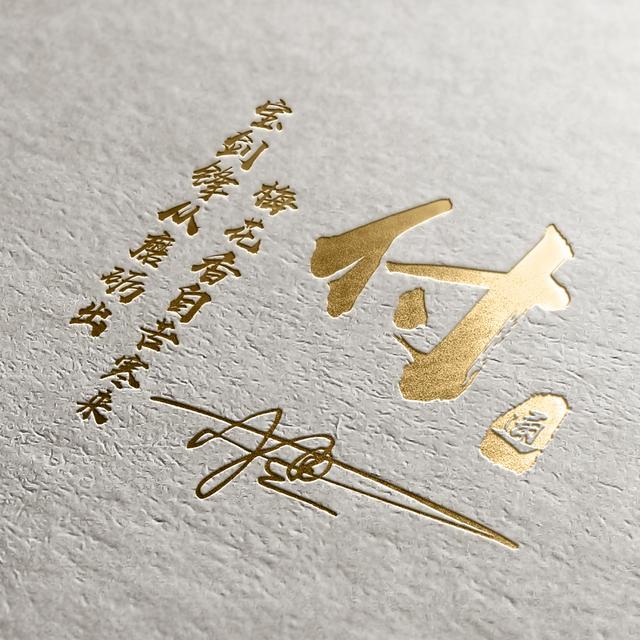 宝剑锋从磨砺出
梅花香自苦寒来
付